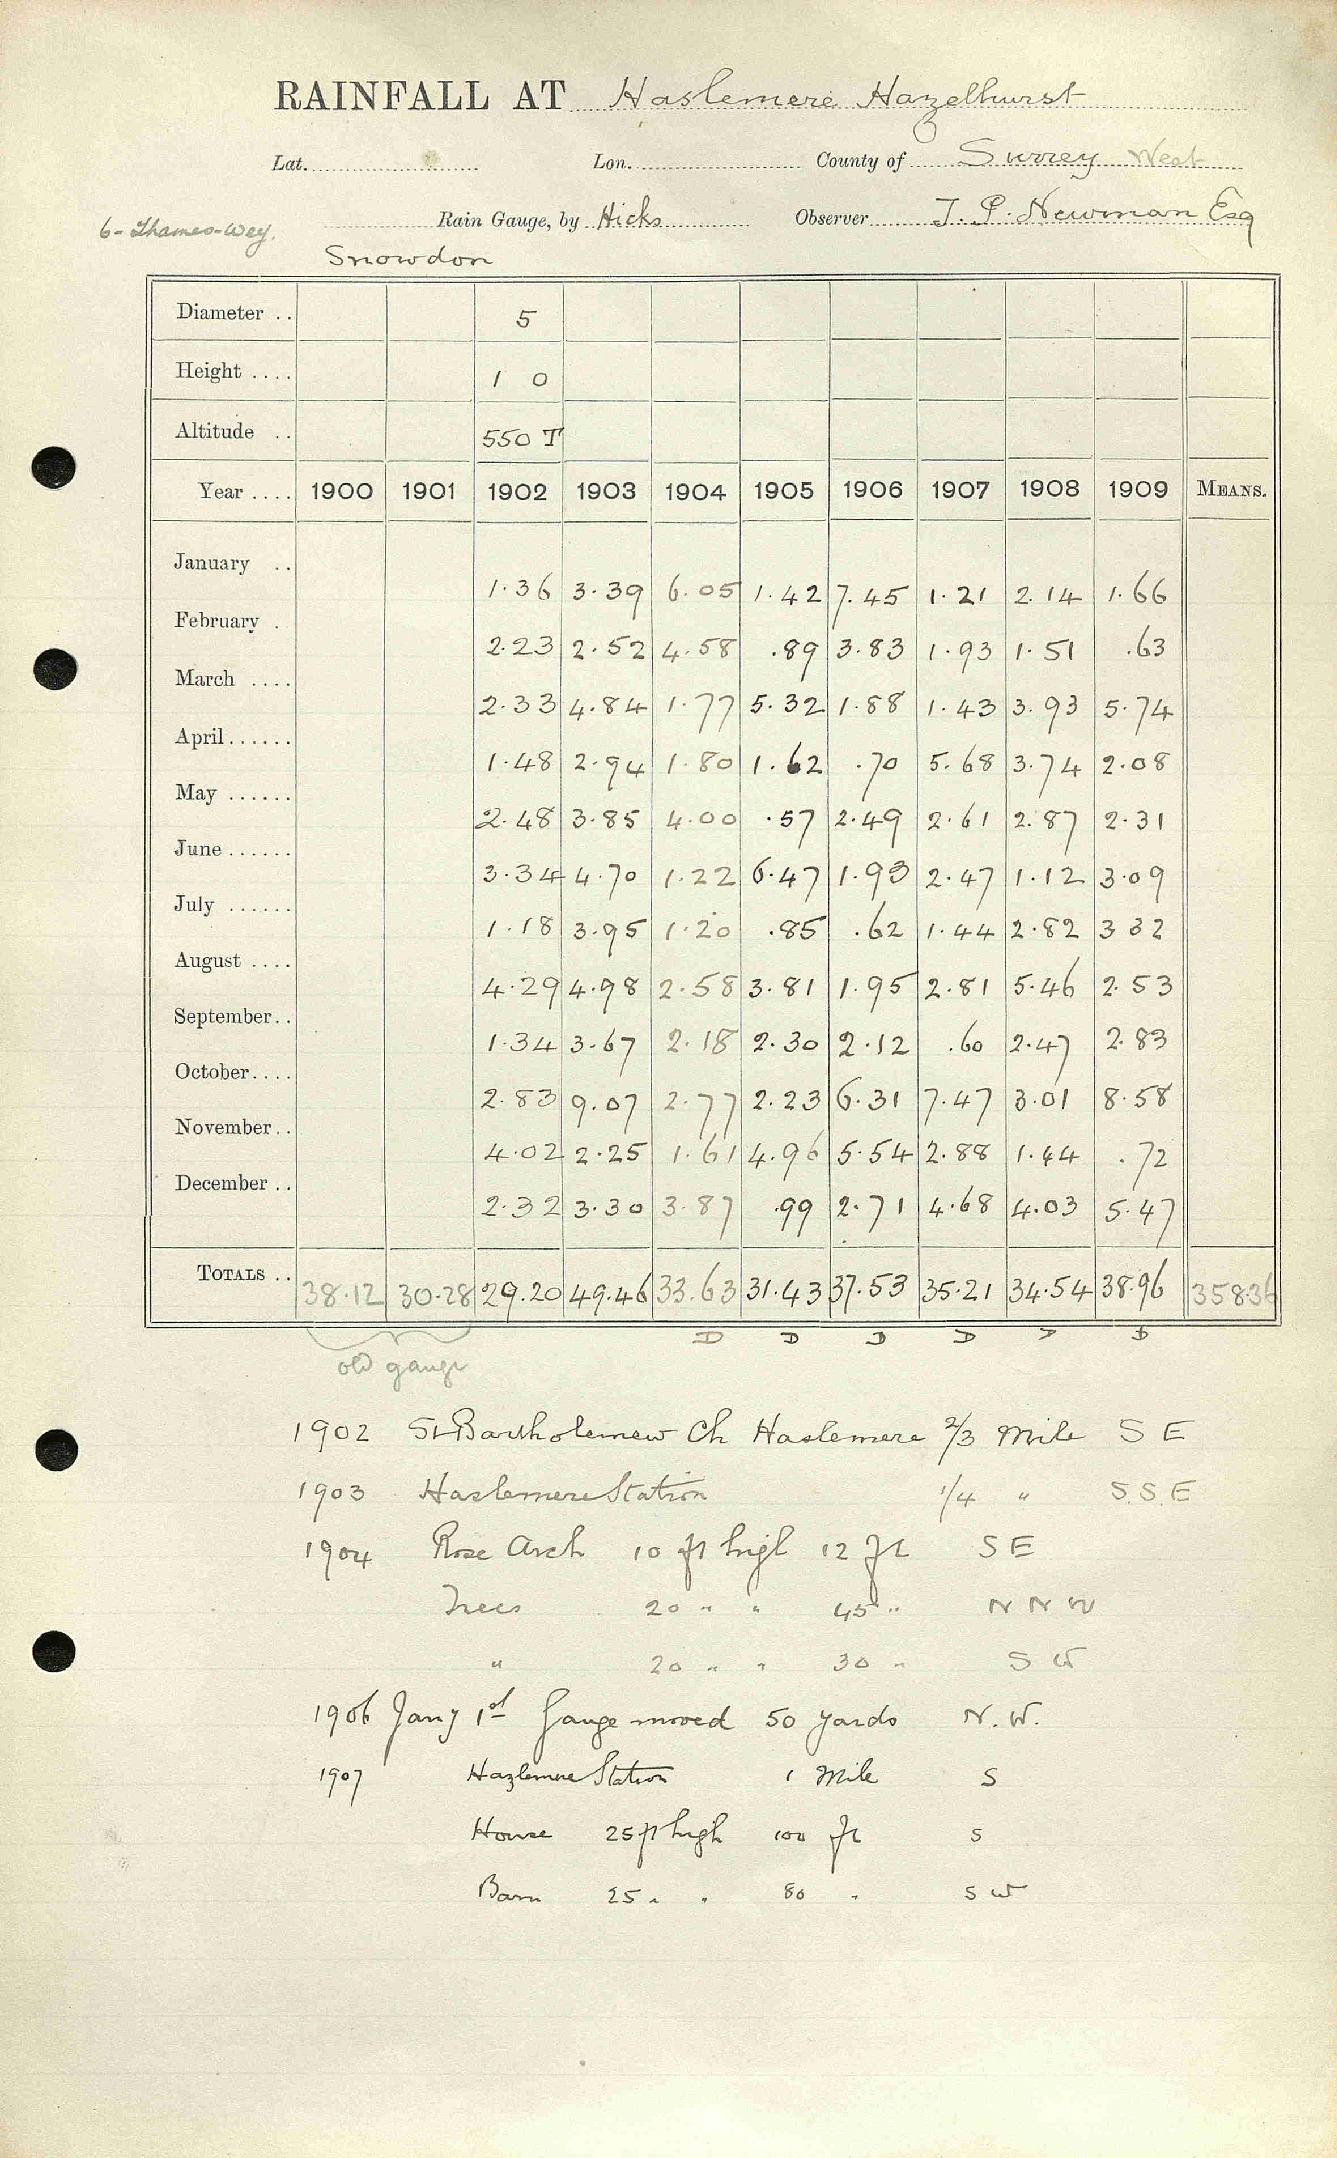 RAINFALL AT Haslemere Hazelhurst
Lat. Lon. County of Surrey West
6 - Thames-Wey. Rain Gauge, by Hicks Observer J. P. Newman Esq
Snowdon
Diameter .. 5
Height .... 1 0
Altitude .. 550 T
Year .... 1900 1901 1902 1903 1904 1905 1906 1907 1908 1909 MEANS.
January .. 1.36 3.39 6.05 1.42 7.45 1.21 2.14 1.66
February . 2.23 2.52 4.58 .89 3.83 1.93 1.51 .63
March .... 2.33 4.84 1.77 5.32 1.88 1.43 3.93 5.74
April...... 1.48 2.94 1.80 1.62 .70 5.68 3.74 2.08
May ...... 2.48 3.85 4.00 .57 2.49 2.61 2.87 2.31
June ...... 3.34 4.70 1.22 6.47 1.93 2.47 1.12 3.09
July ...... 1.18 3.95 1.20 .85 .62 1.44 2.82 3 32
August .... 4.29 4.98 2.58 3.81 1.95 2.81 5.46 2.53
September.. 1.34 3.67 2.18 2.30 2.12 .60 2.47 2.83
October.... 2.83 9.07 2.77 2.23 6.31 7.47 3.01 8.58
November.. 4.02 2.25 1.61 4.96 5.54 2.88 1.44 .72
December .. 2.32 3.30 3.87 .99 2.71 4.68 4.03 5.47
TOTALS .. 38.12 30.28 29.20 49.46 33.63 31.43 37.53 35.21 34.54 38.96 358.36
D D D D D D
old gauge
1902 St Bartholemew Ch Haslemere 2/3 Mile S E
1903 Haslemere Station 1/4 " S.S.E
1904 Rose Arch 10 ft high 12 ft S E
Trees 20 " " 45 " N N W
" 20 " " 30 " S W
1906 Jany 1st Gauge moved 50 yards N.W.
1907 Hazlemere Station 1 Mile S
House 25 ft high 100 ft S
Barn 25 " " 80 " S W